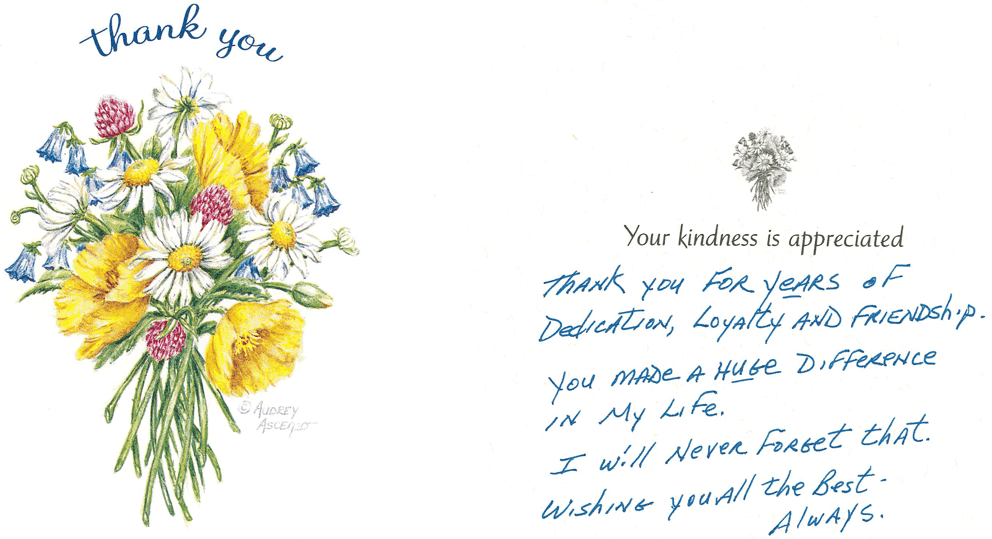 thank you
© AUDREY
ASCENZO
Your kindness is appreciated
THANK YOU FOR YEARS OF
DEDICATION, LOYALTY AND FRIENDSHIP.
YOU MADE A HUGE DIFFERENCE
IN MY LIFE.
I WILL NEVER FORGET THAT.
WISHING YOU ALL THE BEST -
ALWAYS.